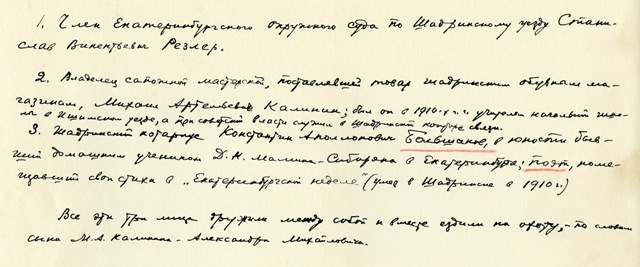 1. Член Екатеринбургского окружного суда по Шадринскому уезду Стани-
слав Викентьевич Резлер.
2. Владелец сапожной мастерской, поставлявшей товар шадринским обувным ма-
газинам, Михаил Артемьевич Калинин; был он в 1910-х г.г. учителем начальной шко-
лы в Ишимском уезде, а при советской власти служил в Шадринской конторе связи.
3. Шадринский нотариус Константин Аполлонович Большаков, в юности быв-
ший домашним учеником Д.Н. Мамина-Сибиряка в Екатеринбурге; поэт, поме-
щавший свои стихи в „Екатеринбургской неделе" (умер в Шадринске в 1910 г.)
Все эти три лица дружили между собой и вместе ездили на охоту, – по словам
сына М.А. Калинина – Александра Михайловича.